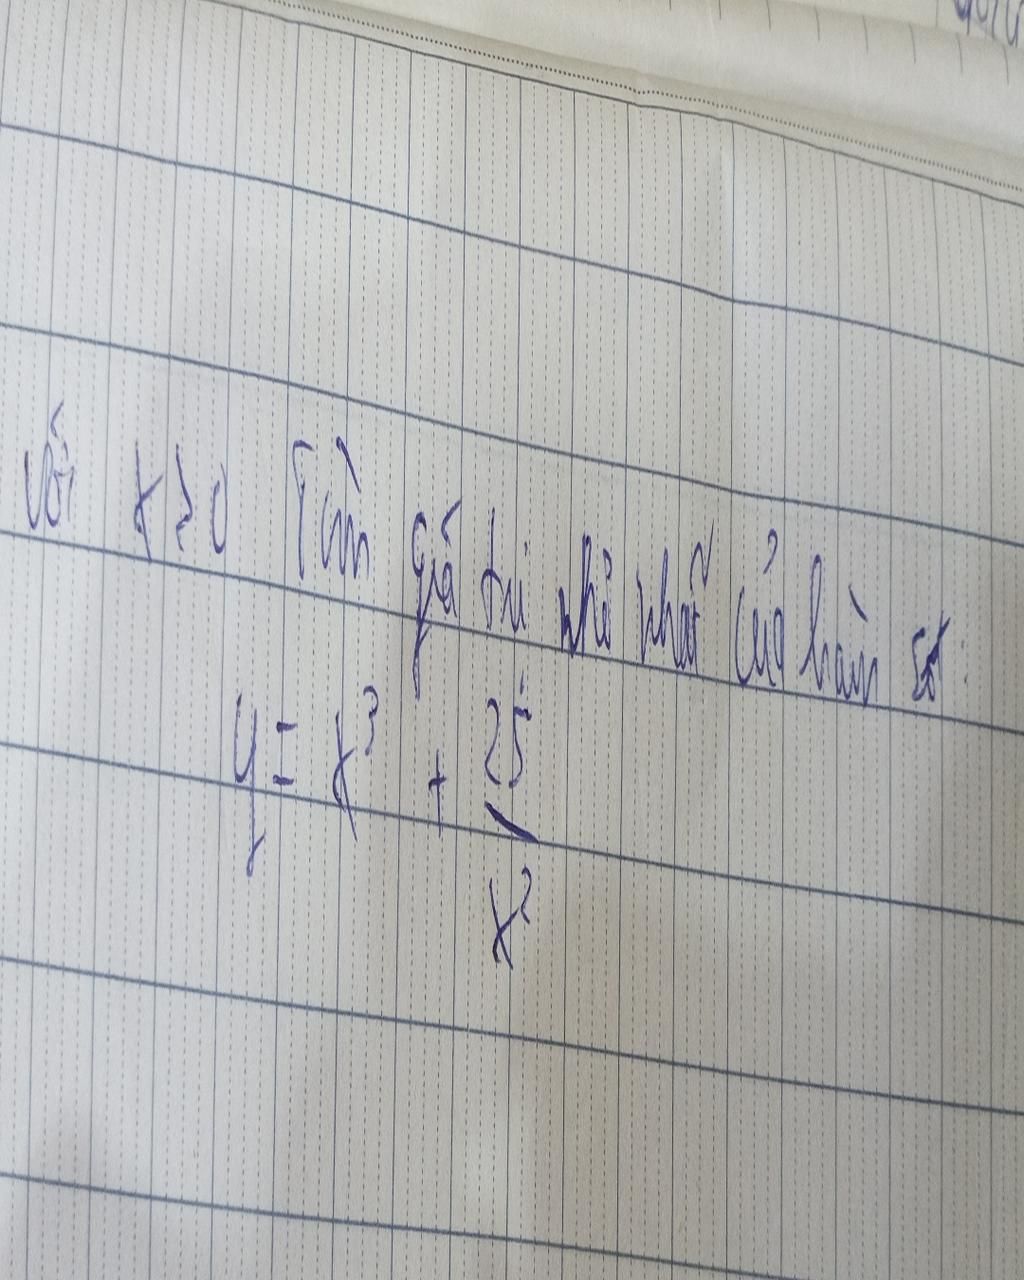 Với x ≥ 0 Tìm giá trị nhỏ nhất của hàm số:
y = x³ + 25/x²